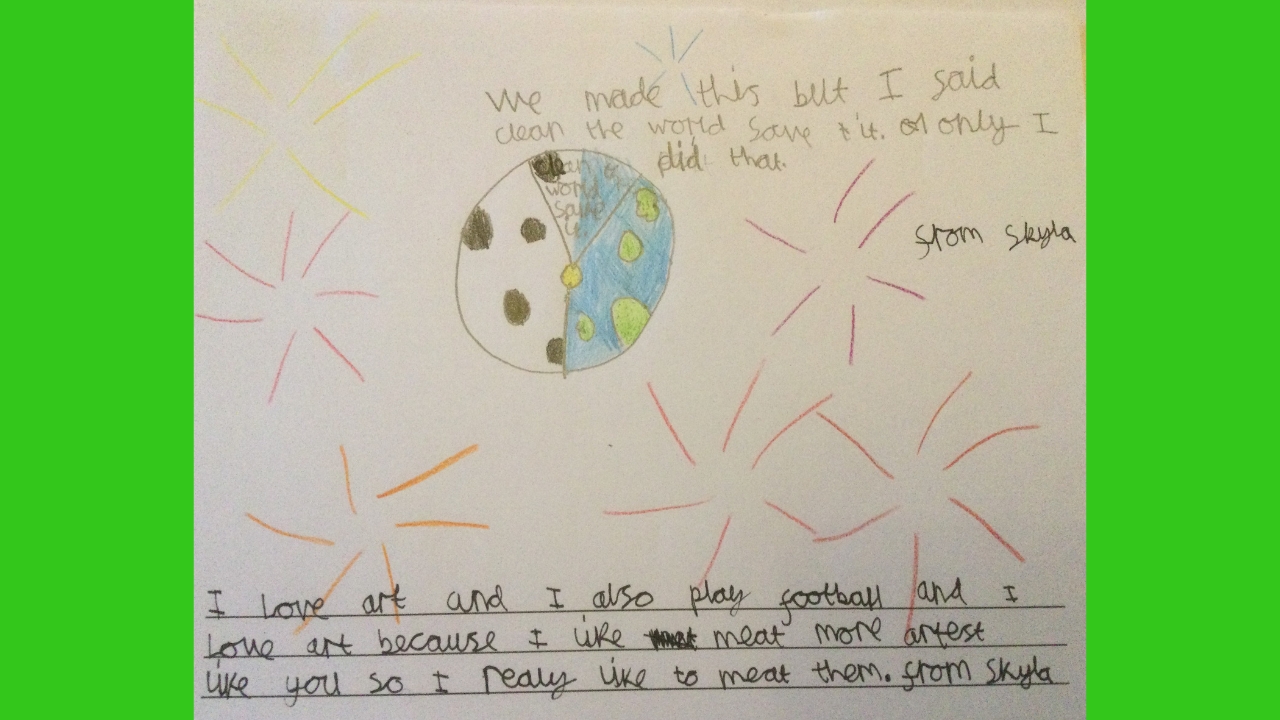 We made this but I said
clean the world save it. only I
did that.
clean
world
save
it.
from skyla
I Love art and I also play football and I
Love art because I like meat more artest
like you so I realy like to meat them. from Skyla